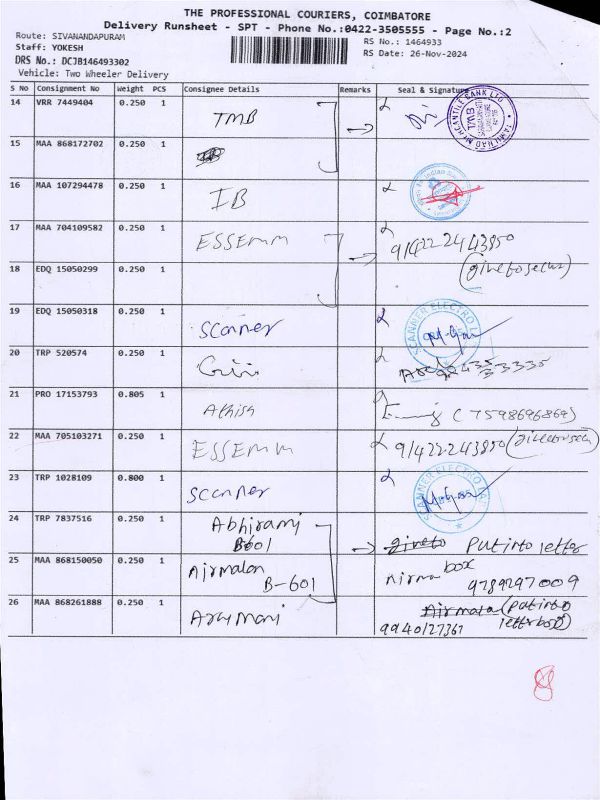 THE PROFESSIONAL COURIERS, COIMBATORE
Delivery Runsheet - SPT - Phone No.:0422-3505555 - Page No.:2
Route: SIVANANDAPURAM
Staff: YOKESH
DRS No.: DCJB146493302
Vehicle: Two Wheeler Delivery
RS No.: 1464933
RS Date: 26-Nov-2024
S No Consignment No Weight PCS Consignee Details Remarks Seal & Signature
14 VRR 7449404 0.250 1 TMB
TAMILNAD MERCANTILE BANK LTD
TMB
15 MAA 868172702 0.250 1
16 MAA 107294478 0.250 1 IB
17 MAA 704109582 0.250 1 ESSEMM 914222443850
18 EDQ 15050299 0.250 1
19 EDQ 15050318 0.250 1 Scanner
SCANNER ELECTRO
20 TRP 520574 0.250 1
21 PRO 17153793 0.805 1 (7598696869)
22 MAA 705103271 0.250 1 ESSEMM 914222443850
23 TRP 1028109 0.800 1 Scanner
SCANNER ELECTRO
24 TRP 7837516 0.250 1 Abhirami put into letter
B601 box
25 MAA 868150050 0.250 1 Nirmalan Nirma
B-601 9789297009
26 MAA 868261888 0.250 1 Arumani (put into
9940127367 letterbox)
8